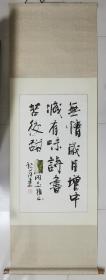 無情歲月增中
減有味詩書
苦後甜
同志